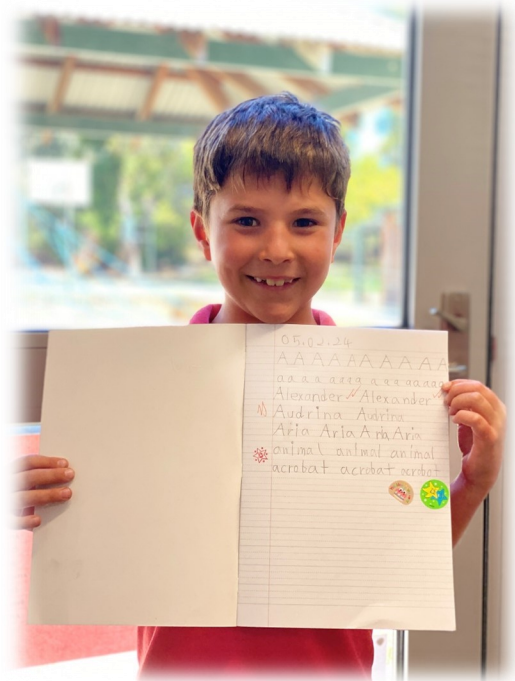 05.02.24
A A A A A A A A A A
a a a a a a a a a a a a a a
Alexander Alexander
Audrina Audrina
Aria Aria Aria Aria
animal animal animal
acrobat acrobat acrobat